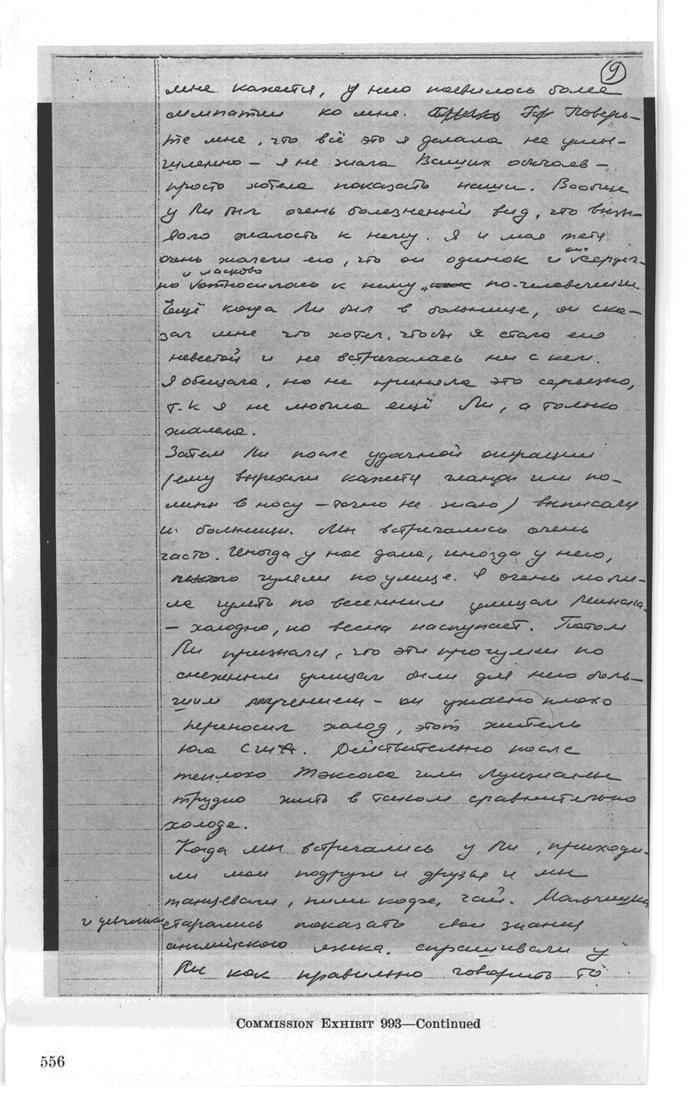 9
мне кажется, у него появилось более
симпатии ко мне. Поверь-
те мне, что всё это я делала не умы-
шленно - я не знала Ваших обычаев -
просто хотела показать наши. Вообще
у Ли был очень болезненый вид, что вызы-
вало жалость к нему. Я и мая тетя
очень жалели его, что он одинок и
и ласково
но относилась к нему по-человечески.
Ещё когда Ли был в больнице, он ска-
зал мне что хотел, чтобы я стала его
невестой и не встречалась ни с кем.
Я обещала, но не приняла это серьезно,
т.к я не любила ещё Ли, а только
жалела.
Затем Ли после удачной операции
(ему вырезали кажется гланды или по-
липы в носу - точно не знаю) выписали
из больницы. Мы встречались очень
часто. Иногда у нас дома, иногда у него,
гуляли по улице. Я очень люби-
ла гулять по весенним улицам Минска
- холодно, но весна наступает. Потом
Ли признался, что эти прогулки по
снежным улицам были для него боль-
шим мучением - он ужасно плохо
переносил холод, этот житель
юга США. Действительно после
теплого Тэксаса или Луизианы
трудно жить в таком сравнительно
холоде.
Когда мы встречались у Ли, приходи-
ли мои подруги и друзья и мы
танцевали, пили кофе, чай. Мальчишки
и девчонки старались показать свои знания
английского языка, спрашивали у
Ли как правильно говорить то
COMMISSION EXHIBIT 993—Continued
556